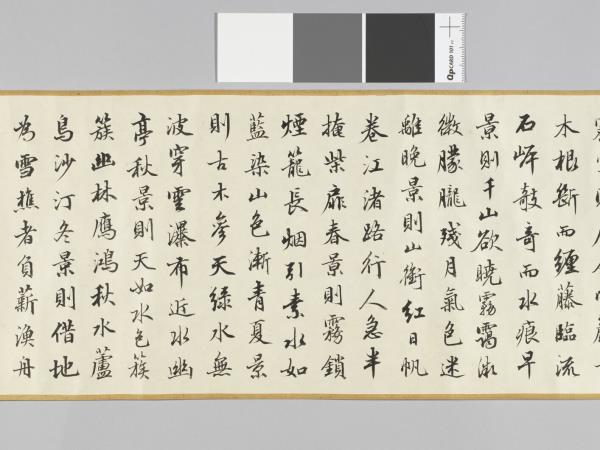 木根斷而纏藤臨流
石岸欹奇而水痕早
景則千山欲曉霧靄微
微朦朧殘月氣色迷
離晚景則山銜紅日帆
卷江渚路行人急半
掩柴扉春景則霧鎖
煙籠長烟引素水如
藍染山色漸青夏景
則古木參天綠水無
波穿雲瀑布近水幽
亭秋景則天如水色簇
簇幽林鴈鴻秋水蘆
鳥沙汀冬景則借地
為雪樵者負薪漁舟
QpCARD 101